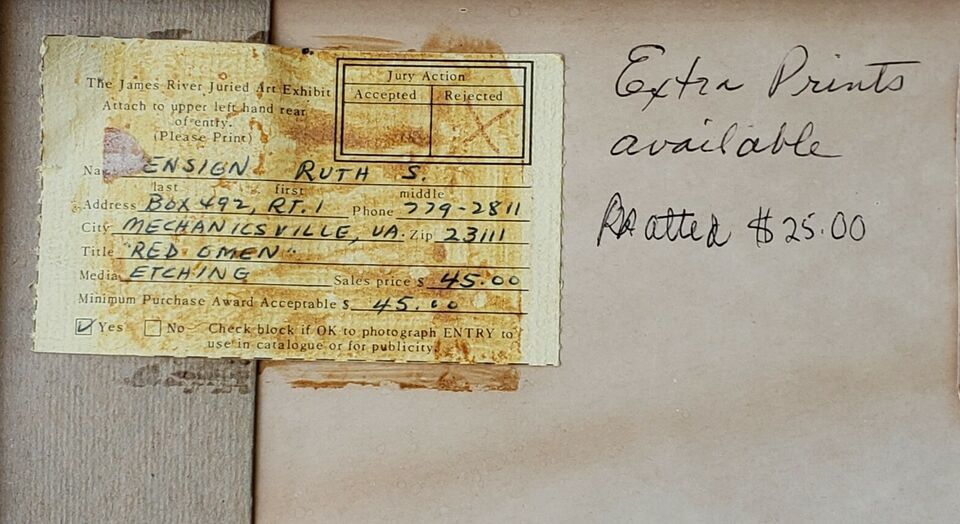 The James River Juried Art Exhibit
Attach to upper left hand rear
of entry.
(Please Print)
Jury Action
Accepted Rejected
X
Na ENSIGN RUTH S.
last first middle
Address BOX 492, RT. 1 Phone 779-2811
City MECHANICSVILLE, VA. Zip 23111
Title "RED OMEN"
Media ETCHING Sales price $ 45.00
Minimum Purchase Award Acceptable $ 45.00
Yes No Check block if OK to photograph ENTRY to
use in catalogue or for publicity.
Extra Prints
available
$25.00